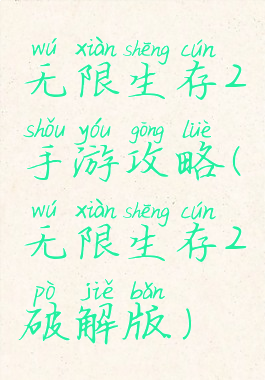 wú xiàn shēng cún
无限生存2
shǒu yóu gōng lüè
手游攻略(
wú xiàn shēng cún
无限生存2
pò jiě bǎn
破解版)